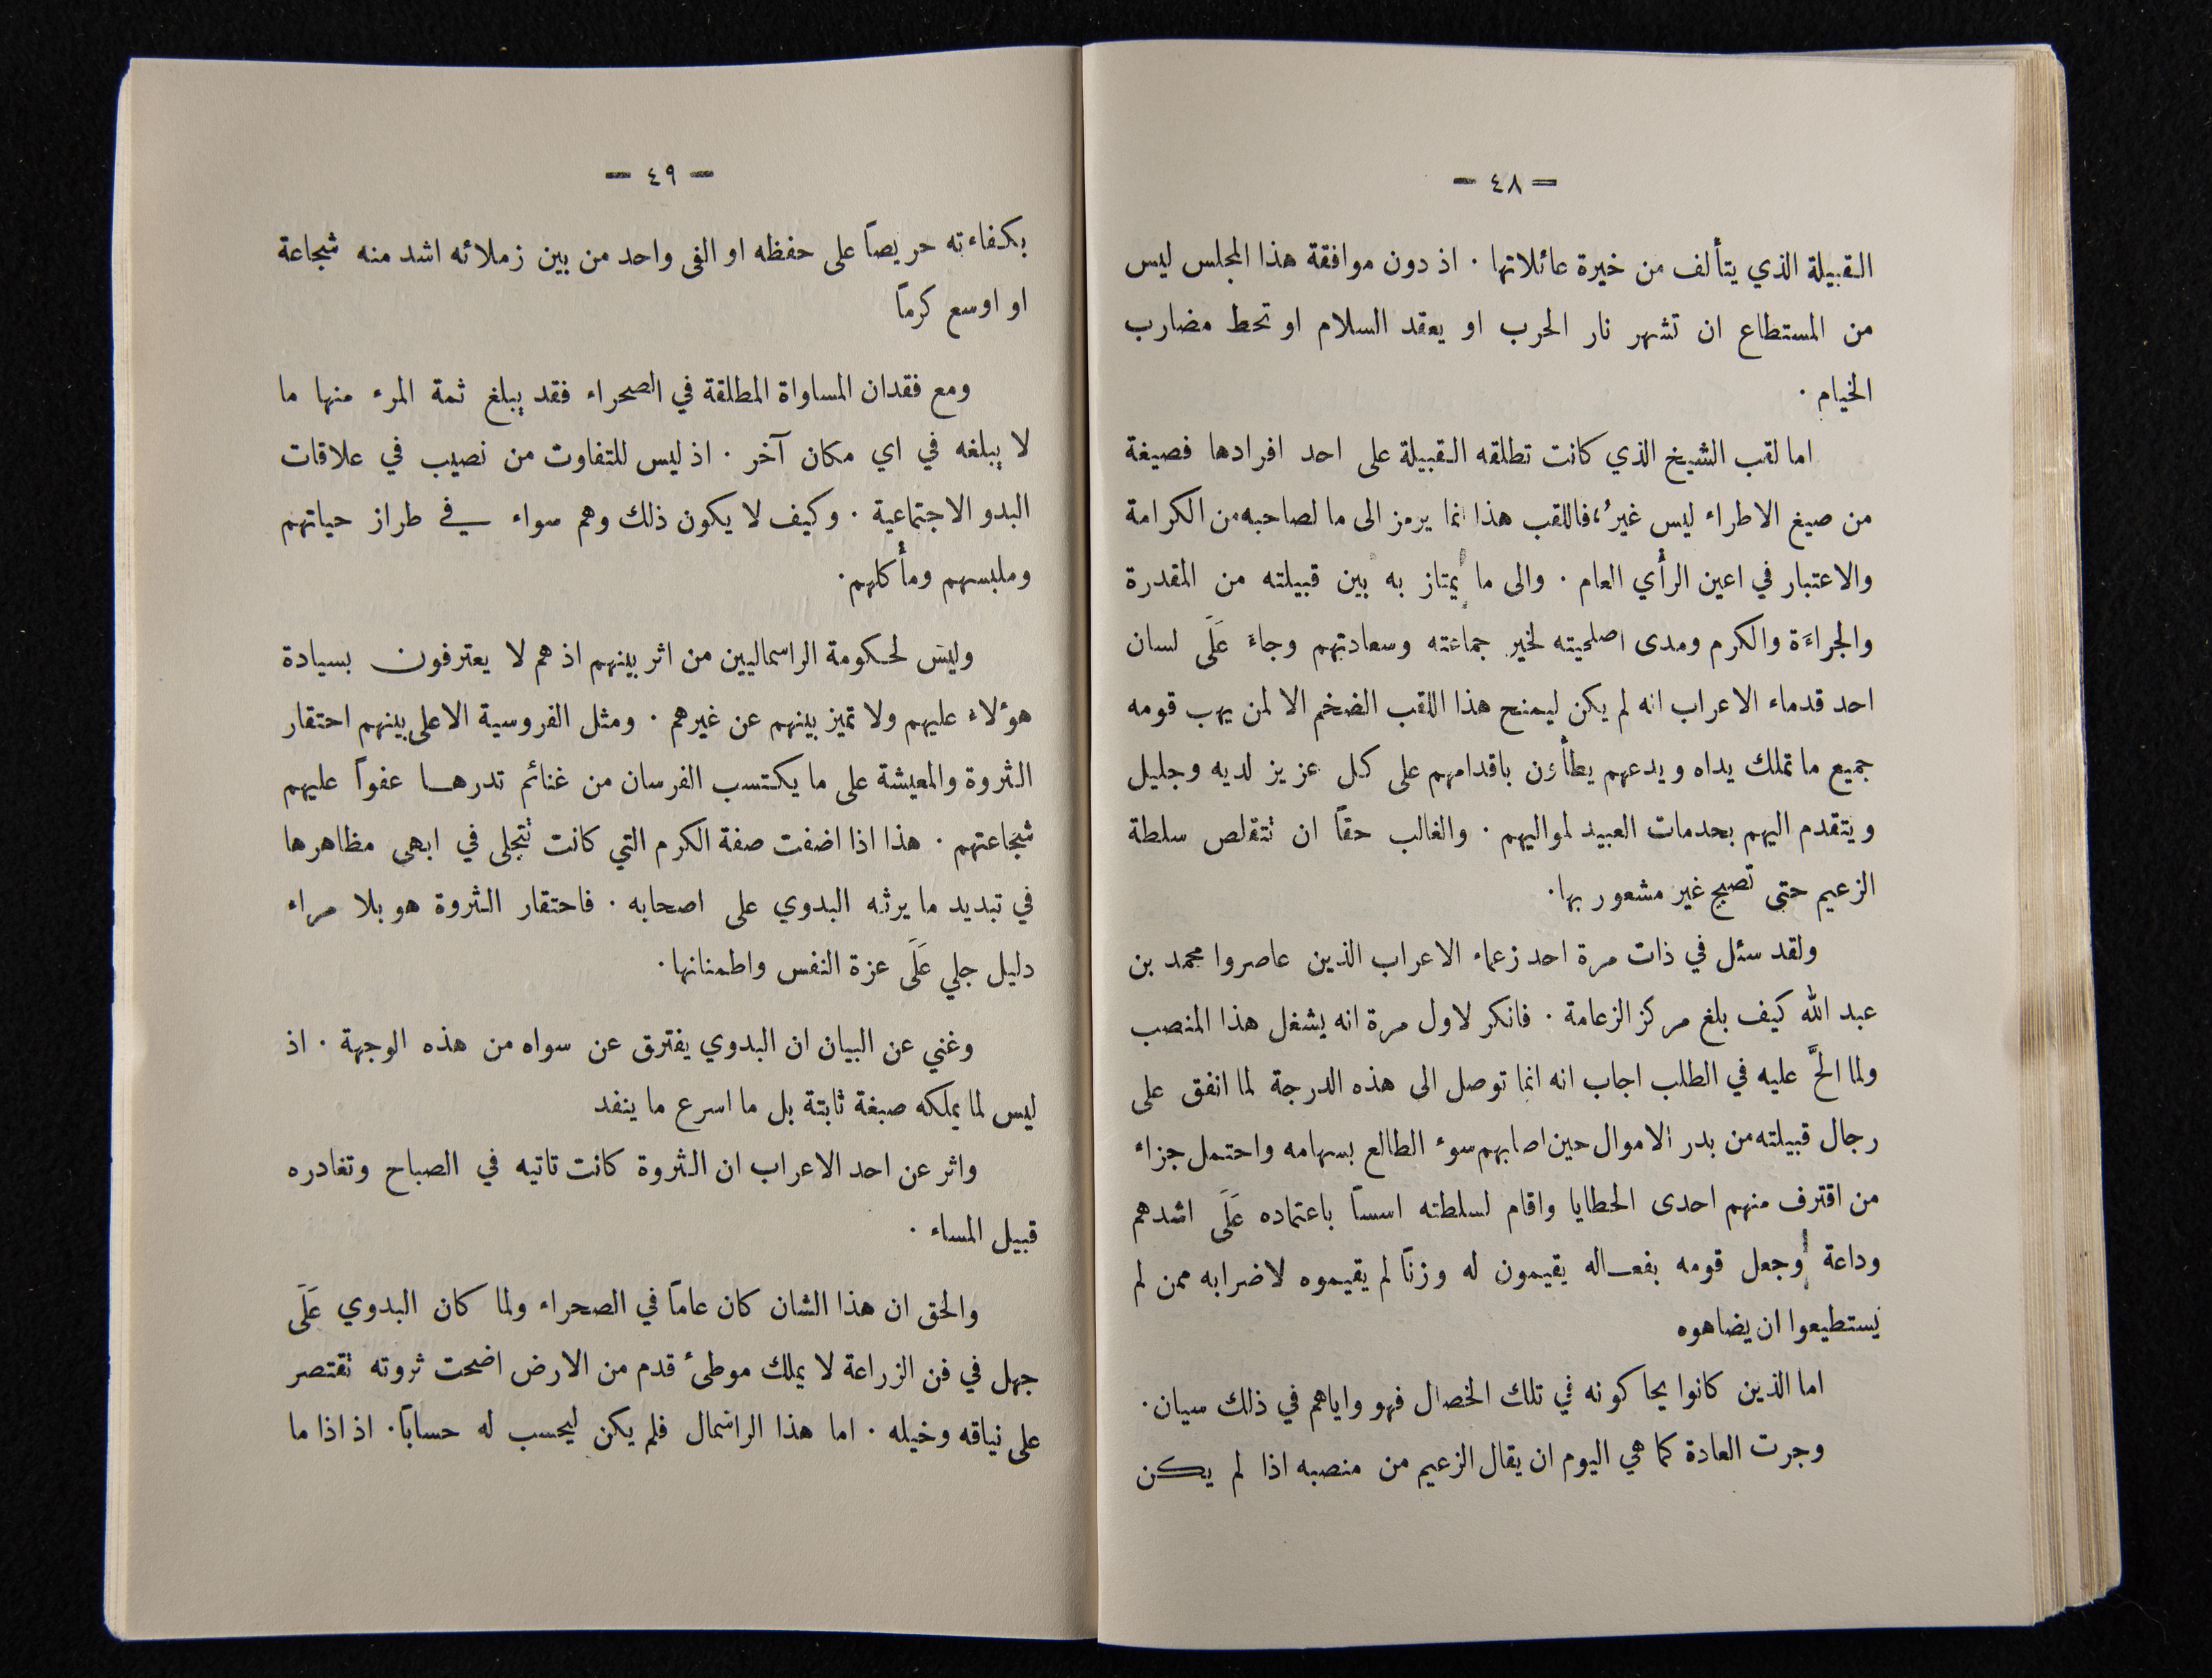 – ٤٨ –
القبيلة الذي يتألف من خيرة عائلاتها . اذ دون موافقة هذا المجلس ليس
من المستطاع ان تشهر نار الحرب او يعقد السلام او تحط مضارب
الخيام .
اما لقب الشيخ الذي كانت تطلقه القبيلة على احد افرادها فصيغة
من صيغ الاطراء ليس غيرُ، فاللقب هذا انما يرمز الى ما لصاحبه من الكرامة
والاعتبار في اعين الرأي العام . والى ما يمتاز به بين قبيلته من المقدرة
والجراءَة والكرم ومدى اصلحيته لخير جماعته وسعادتهم وجاءَ عَلَى لسان
احد قدماء الاعراب انه لم يكن ليمنح هذا اللقب الضخم الا لمن يهب قومه
جميع ما تملك يداه ويدعهم يطأون باقدامهم على كل عزيز لديه وجليل
ويتقدم اليهم بخدمات العبيد لمواليهم . والغالب حقاً ان تتقلص سلطة
الزعيم حتى تصبح غير مشعور بها .
ولقد سئل في ذات مرة احد زعماء الاعراب الذين عاصروا محمد بن
عبد الله كيف بلغ مركز الزعامة . فانكر لاول مرة انه يشغل هذا المنصب
ولما الحَّ عليه في الطلب اجاب انه انما توصل الى هذه الدرجة لما انفق على
رجال قبيلته من بدر الاموال حين اصابهم سوء الطالع بسهامه واحتمل جزاء
من اقترف منهم احدى الخطايا واقام لسلطته اسساً باعتماده عَلَى اشدهم
وداعة وجعل قومه بفعاله يقيمون له وزناً لم يقيموه لاضرابه ممن لم
يستطيعوا ان يضاهوه
اما الذين كانوا يحاكونه في تلك الخصال فهو واياهم في ذلك سيان .
وجرت العادة كما هي اليوم ان يقال الزعيم من منصبه اذا لم يكن
– ٤٩ –
بكفاءته حريصاً على حفظه او الفى واحد من بين زملائه اشد منه شجاعة
او اوسع كرماً
ومع فقدان المساواة المطلقة في الصحراء فقد يبلغ ثمة المرء منها ما
لا يبلغه في اي مكان آخر . اذ ليس للتفاوت من نصيب في علاقات
البدو الاجتماعية . وكيف لا يكون ذلك وهم سواء في طراز حياتهم
وملبسهم ومأكلهم .
وليس لحكومة الراسماليين من اثر بينهم اذ هم لا يعترفون بسيادة
هؤلاء عليهم ولا تميز بينهم عن غيرهم . ومثل الفروسية الاعلى بينهم احتقار
الثروة والمعيشة على ما يكتسب الفرسان من غنائم تدرها عفواً عليهم
شجاعتهم . هذا اذا اضفت صفة الكرم التي كانت تتجلى في ابهى مظاهرها
في تبديد ما يرثه البدوي على اصحابه . فاحتقار الثروة هو بلا مراء
دليل جلي عَلَى عزة النفس واطمنانها .
وغني عن البيان ان البدوي يفترق عن سواه من هذه الوجهة . اذ
ليس لما يملكه صبغة ثابتة بل ما اسرع ما ينفد
واثر عن احد الاعراب ان الثروة كانت تاتيه في الصباح وتغادره
قبيل المساء .
والحق ان هذا الشان كان عاماً في الصحراء ولما كان البدوي عَلَى
جهل في فن الزراعة لا يملك موطئ قدم من الارض اضحت ثروته تقتصر
على نياقه وخيله . اما هذا الراسمال فلم يكن ليحسب له حساباً . اذ اذا ما